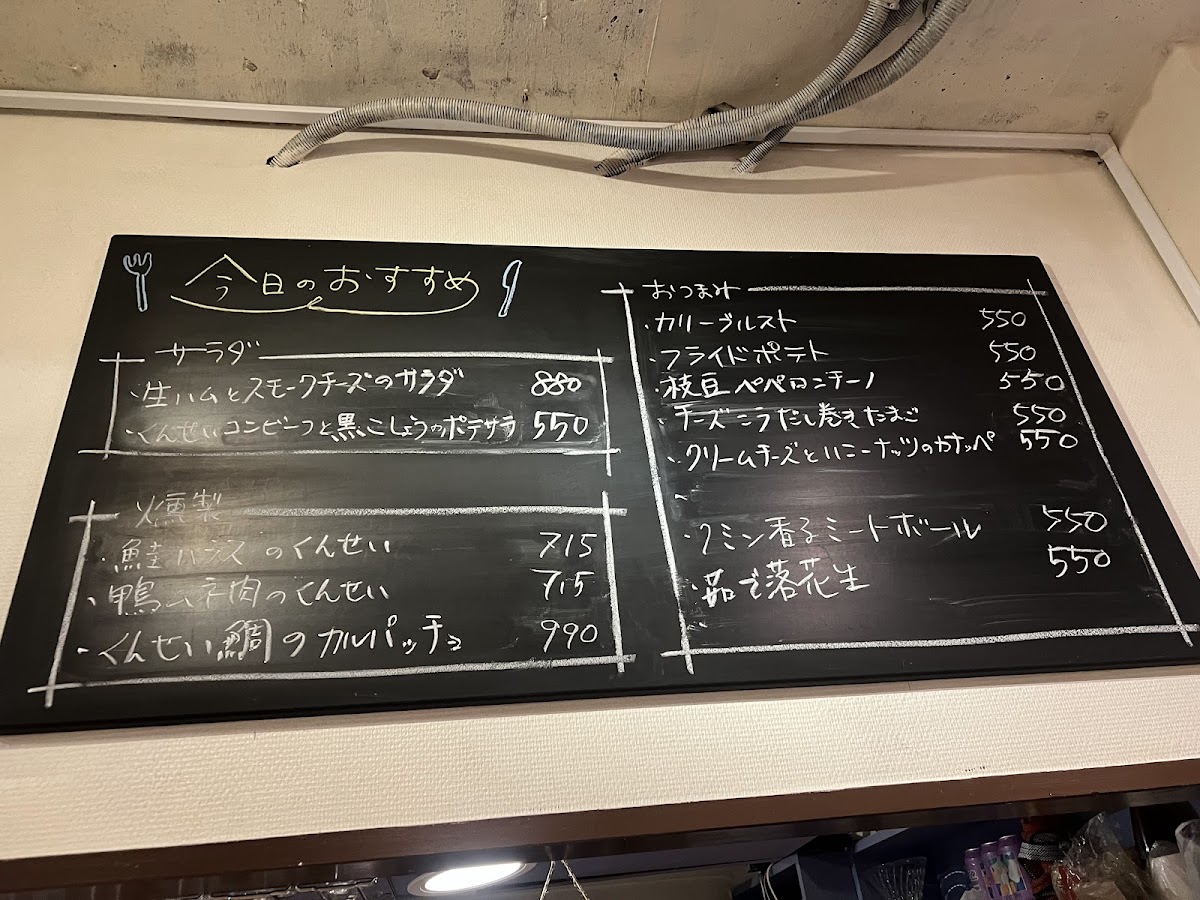 今日のおすすめ
サラダ
・生ハムとスモークチーズのサラダ 880
・くんせいコンビーフと黒こしょうのポテサラ 550
燻製
・鮭ハラスのくんせい 715
・鴨ムネ肉のくんせい 715
・くんせい鯛のカルパッチョ 990
おつまみ
・カリーブルスト 550
・フライドポテト 550
・枝豆ペペロンチーノ 550
・チーズ入りだし巻きたまご 550
・クリームチーズとハニーナッツのカナッペ 550
・クミン香るミートボール 550
・茹で落花生 550